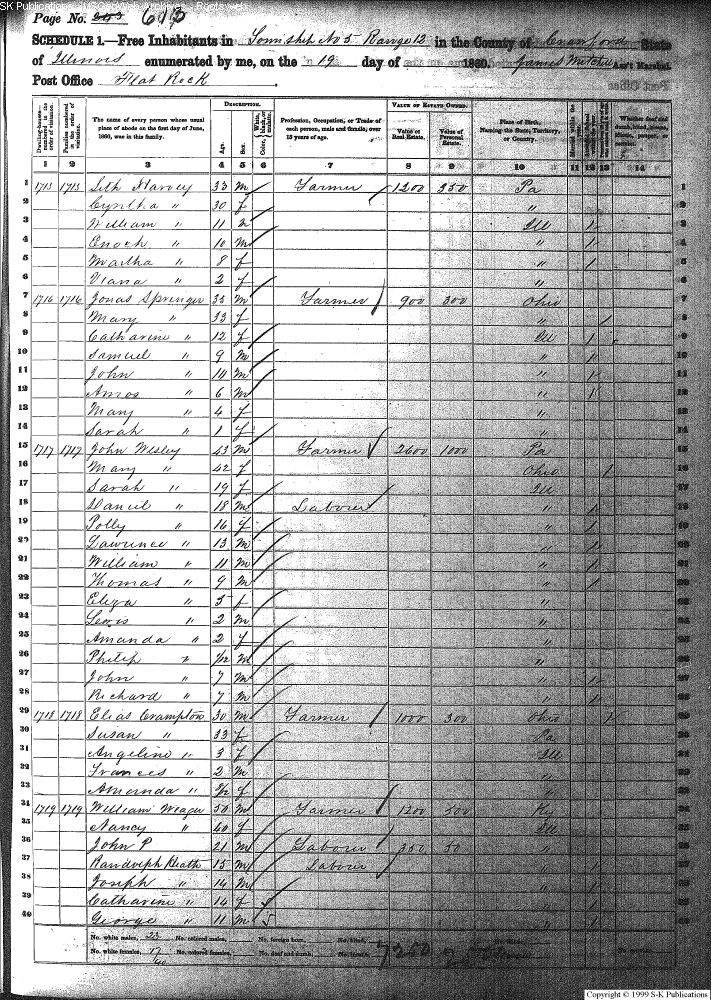 SK Publications - USGenWeb Archives - Rootsweb
Page No. 613
SCHEDULE 1.—Free Inhabitants in Township No 5 Range 12 in the County of Crawford State
of Illinois enumerated by me, on the 19 day of 1860. James Mitchell Ass't Marshal.
Post Office Flat Rock
Dwelling-houses—numbered in the order of visitation.
Families numbered in the order of visitation.
The name of every person whose usual place of abode on the first day of June, 1860, was in this family.
DESCRIPTION.
Age. Sex. Color, White, black, or mulatto.
Profession, Occupation, or Trade of each person, male and female, over 15 years of age.
VALUE OF ESTATE OWNED.
Value of Real Estate. Value of Personal Estate.
Place of Birth, Naming the State, Territory, or Country.
Married within the year.
Whether deaf and dumb, blind, insane, idiotic, pauper, or convict.
1 2 3 4 5 6 7 8 9 10 11 12 13 14
1 1715 1715 Seth Harvey 33 m Farmer 1200 350 Pa 1
2 Cyntha " 30 f " 2
3 William " 11 m Ill 1 3
4 Enoch " 10 m " 1 4
5 Martha " 8 f " 1 5
6 Viana " 2 f " 6
7 1716 1716 Jonas Springer 35 m Farmer 900 300 Ohio 7
8 Mary " 33 f " 1 8
9 Catharine " 12 f Ill 1 9
10 Samuel " 9 m " 1 10
11 John " 14 m " 1 11
12 Amos " 6 m " 1 12
13 Mary " 4 f " 13
14 Sarah " 1 f " 14
15 1717 1717 John Wesley 43 m Farmer 2600 1000 Pa 15
16 Mary " 42 f Ohio 1 16
17 Sarah " 19 f Ill 17
18 Daniel " 18 m Labour " 1 18
19 Polly " 16 f " 1 19
20 Lawrence " 13 m " 1 20
21 William " 11 m " 1 21
22 Thomas " 9 m " 1 22
23 Eliza " 5 f " 23
24 Lewis " 2 m " 24
25 Amanda " 2 f " 25
26 Philip " m " 26
27 John " 7 m " 1 27
28 Richard " 7 m " 1 28
29 1718 1718 Elias Crampton 30 m Farmer 1000 300 Ohio 1 29
30 Susan " 33 f Pa 30
31 Angeline " 3 f Ill 31
32 Frances " 2 m " 32
33 Amanda " f " 33
34 1719 1719 William Weager 50 m Farmer 1200 500 Ky 34
35 Nancy " 40 f Ill 35
36 John P 21 m Labour 350 50 " 36
37 Randolph Heath 15 m Labour " 1 37
38 Joseph " 14 m " 1 38
39 Catharine " 14 f " 1 39
40 George " 11 m " 1 40
No. white males, 23 No. colored males, No. foreign born, No. blind,
No. white females, 17 No. colored females, No. deaf and dumb, No. insane, 7250 2500
40
Copyright © 1999 S-K Publications